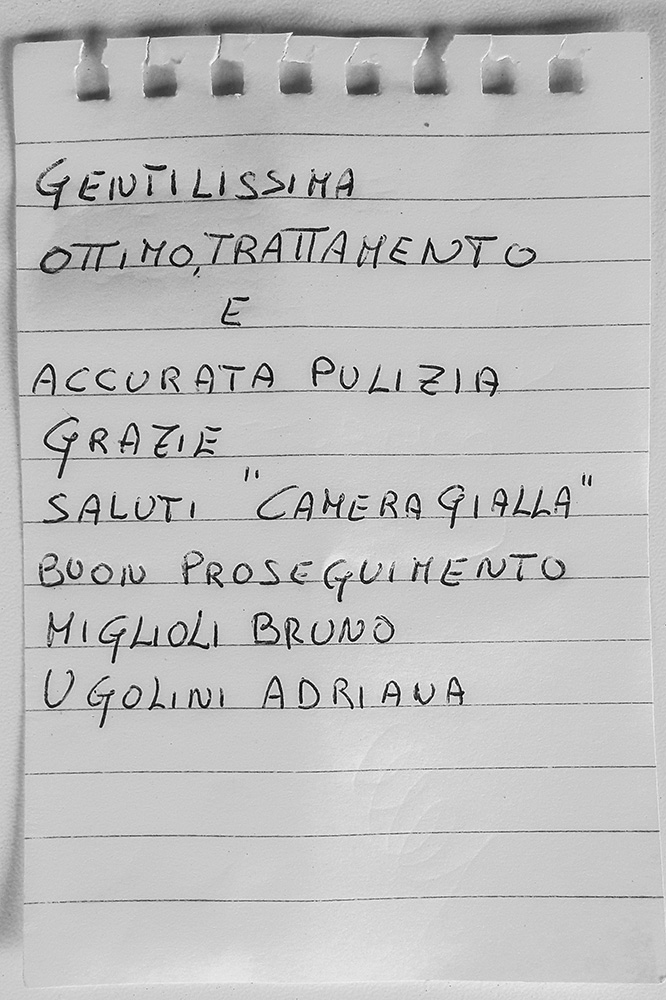 GENTILISSIMA
OTTIMO, TRATTAMENTO
E
ACCURATA PULIZIA
GRAZIE
SALUTI "CAMERA GIALLA"
BUON PROSEGUIMENTO
MIGLIOLI BRUNO
UGOLINI ADRIANA